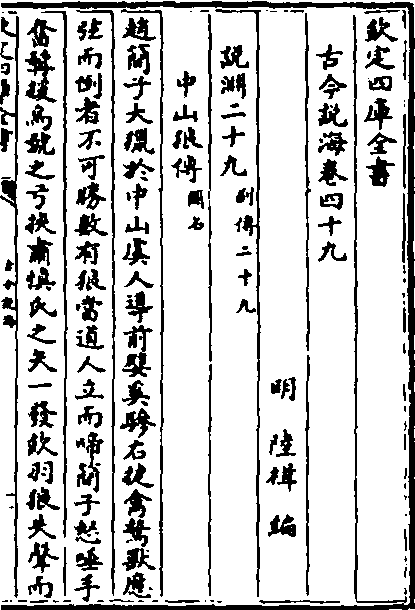 欽定四庫全書
古今說海卷四十九
明 陸楫 編
說淵二十九 別傳二十九
中山狼傳 闕名
趙簡子大獵於中山虞人導前嬖奚驂右捷禽鷙獸應
弦而倒者不可勝數有狼當道人立而啼簡子怒唾手
奮援烏號之弓挾肅慎氏之矢一發飲羽狼失聲而
欽定四庫全書
古今說海